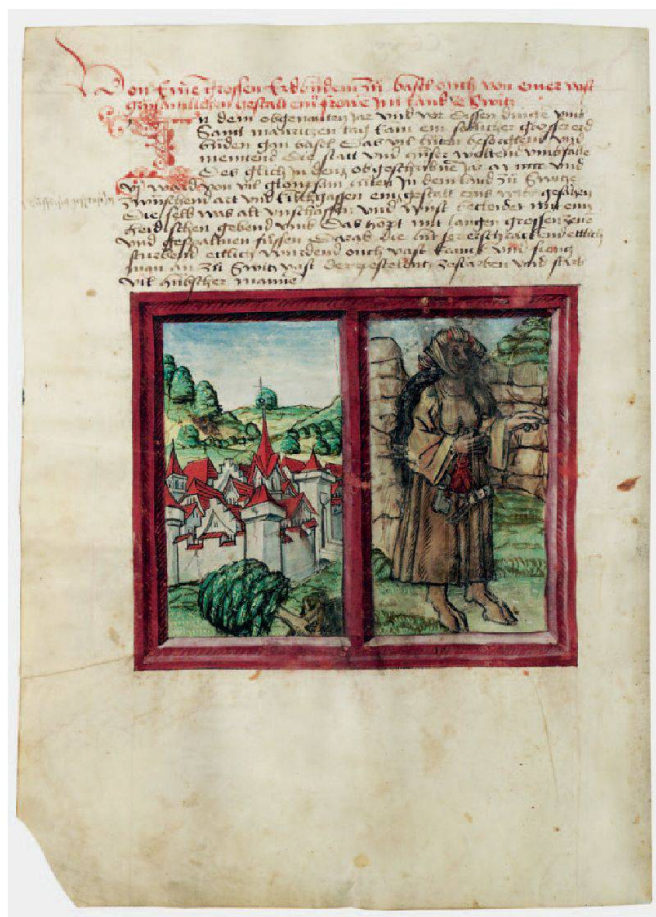 Von Eim grossen Erdbidem zů basel ouch von einer vast
grusamlichen gestalt eins frowe Im land ze Switz
In dem obgenanten jar und vor disen dingen umb
Sant mauritzen tag kam ein sölicher grosser erd
biden gan basel das vil lüten besorgtend und
meintend die statt und welltend umbfalle
Des glich in dem obgeschribne jar und
vj ward von vil gloupsam lüten in dem land zů Switz
zwüschend art und kilchgassen ein gestalt eins wibs gesächen
Die selb was alt ungschaffen und wüst becleidet mit eim
heidischen gebend umb das höpt mit langen grossen zene
und gespaltnen füssen darab die lüt ser erschrackend ettlich
sturbend ettlich wurdend ouch vast kranck und fieng
man an zů Switz vast der pestelentz zesterben und starb
vil hübscher manne